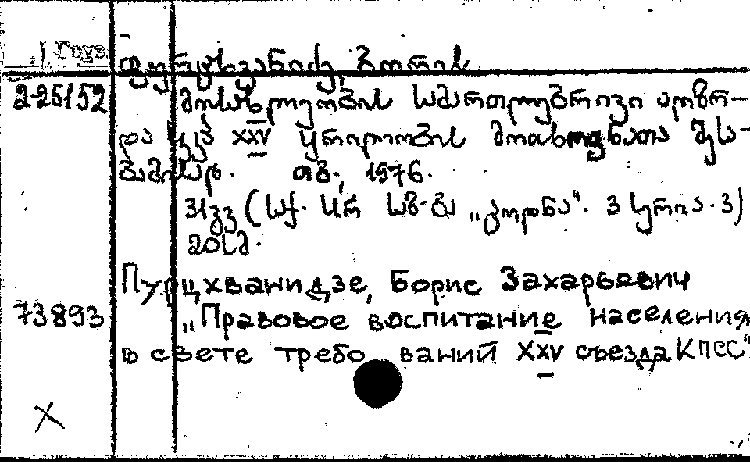 ფურცხვანიძე, ბორის
2-25152 მოსახლეობის სამართლებრივი აღზრ-
და სკკპ XXV ყრილობის მოთხოვნათა შესა-
ბამისად. თბ., 1976.
31გვ (საქ. სსრ საზ-ბა „ცოდნა“. 3 სერია. 3)
20სმ.
Пурцхванидзе, Борис Захарьевич
73893 „Правовое воспитание населения
в свете требо ваний XXV съезда КПСС"
X